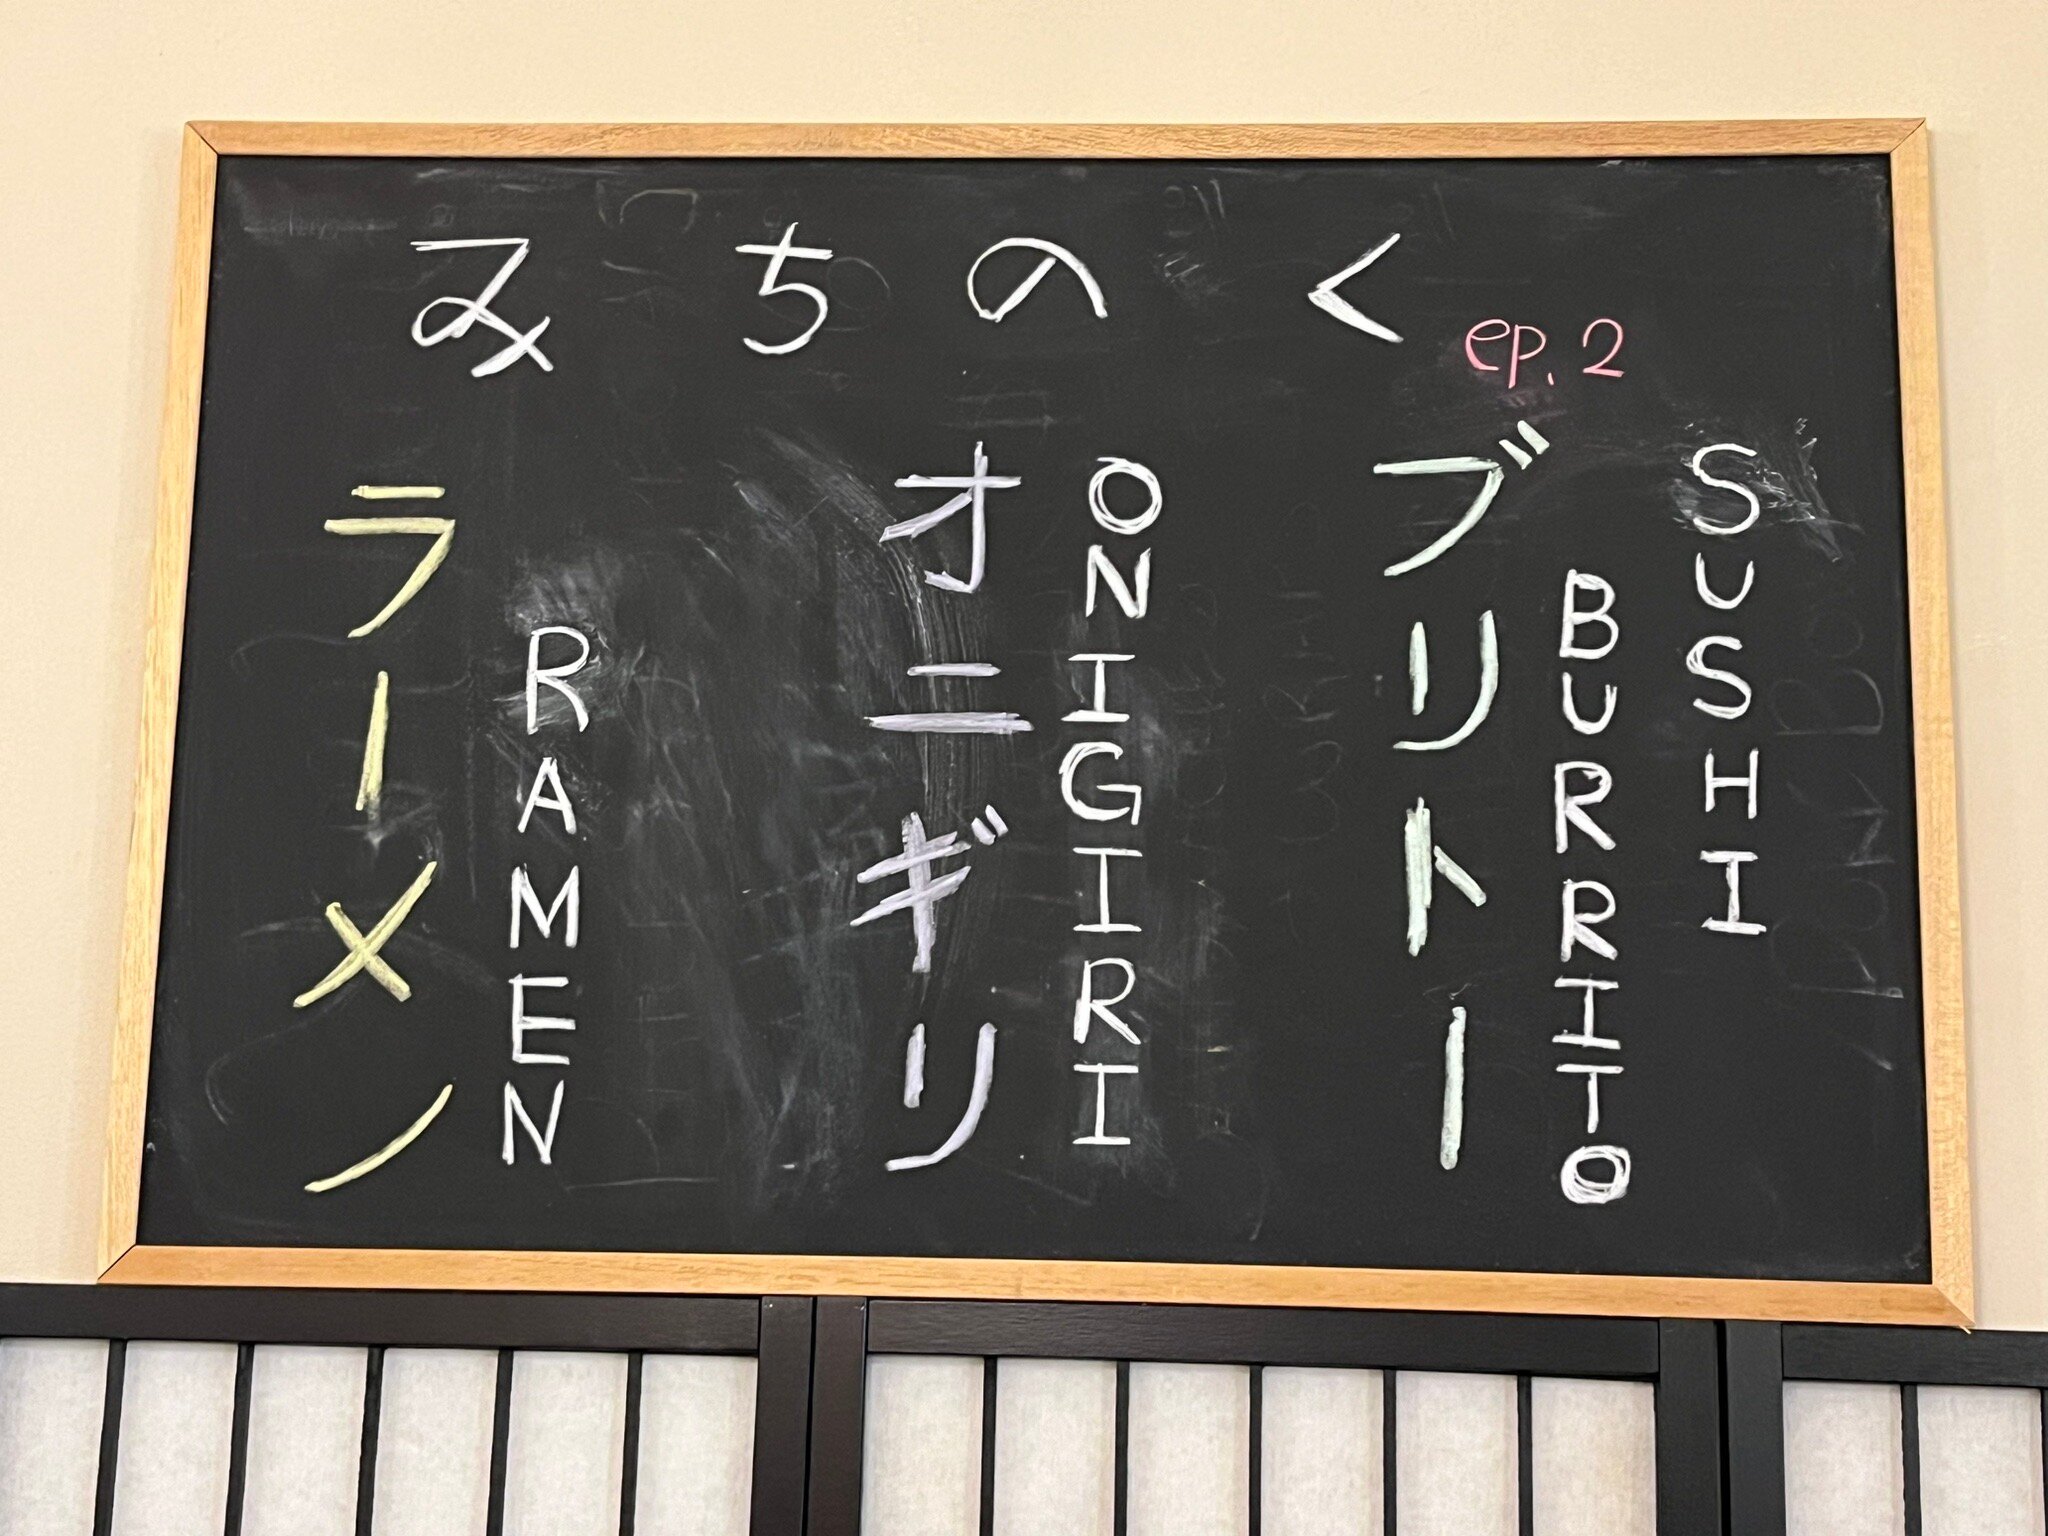 みちのく
ep. 2
SUSHI
BURRITO
ブリトー
ONIGIRI
オニギリ
RAMEN
ラーメノ